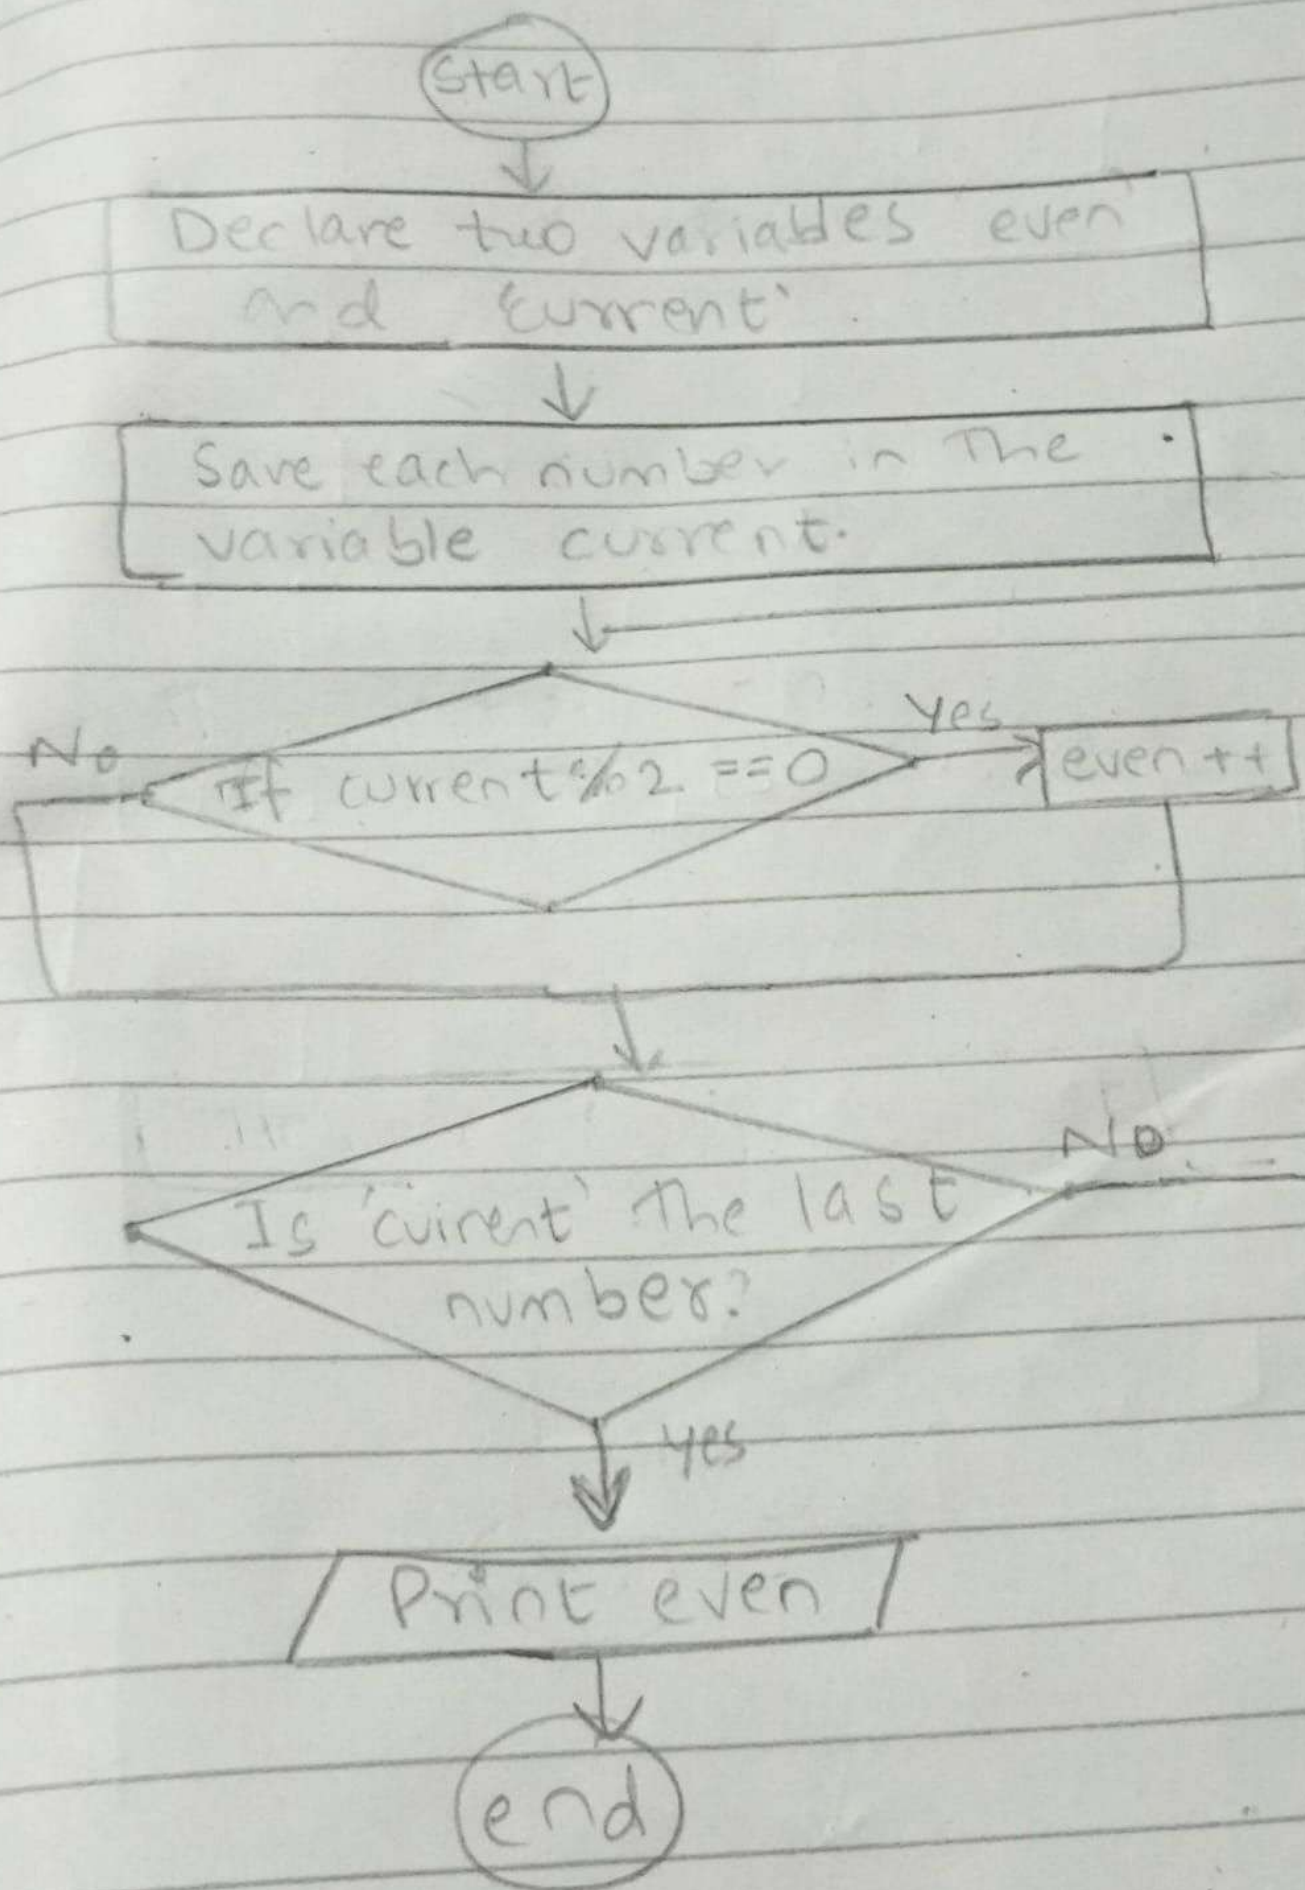 Start
Declare two variables even'
and 'current'
Save each number in The
variable current.
No
If current%2 ==0
Yes
even ++
Is 'current' The last
number?
No
yes
Print even
end